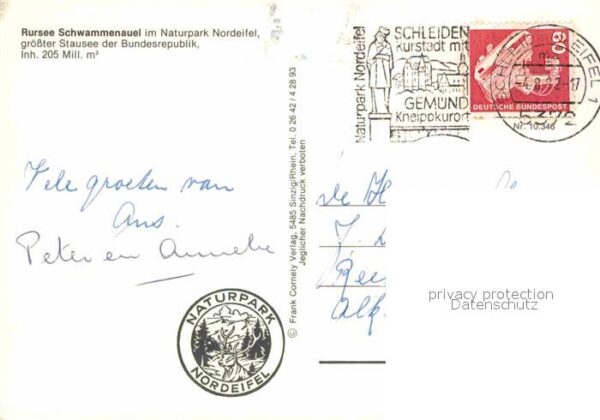 Rursee Schwammenauel im Naturpark Nordeifel,
größter Stausee der Bundesrepublik,
Inh. 205 Mill. m³
Naturpark Nordeifel
SCHLEIDEN
Kurstadt mit
GEMÜND
Kneippkurort
60
DEUTSCHE BUNDESPOST
SCHLEIDEN, EIFEL 1
5372
Nr. 10.346
Vele groeten van
Ans.
Peter en Anneke
© Frank Cornely Verlag, 5485 Sinzig/Rhein, Tel. 0 26 42 / 4 28 93
Jeglicher Nachdruck verboten
de
J.
Alk
privacy protection
Datenschutz
NATURPARK
NORDEIFEL